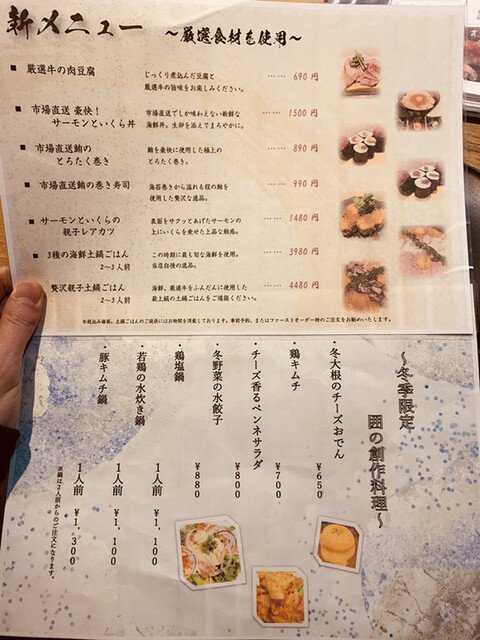 新メニュー ～厳選食材を使用～
■ 厳選牛の肉豆腐
じっくり煮込んだ豆腐と
厳選牛の旨味をお楽しみください。
…… 690 円
■ 市場直送 豪快！
サーモンといくら丼
市場直送でしか味わえない新鮮な
海鮮丼。生卵を添えてまろやかに。
…… 1500 円
■ 市場直送鮪の
とろたく巻き
鮪を豪快に使用した極上の
とろたく巻き。
…… 890 円
■ 市場直送鮪の巻き寿司
海苔巻きから溢れる程の鮪を
使用した贅沢な逸品。
…… 990 円
■ サーモンといくらの
親子レアカツ
表面をサクッとあげたサーモンの
上にいくらを乗せた上品な触感。
…… 1480 円
■ 3種の海鮮土鍋ごはん
2～3人前
この時期に最も旬な海鮮を使用。
当店自慢の逸品。
…… 3980 円
贅沢親子土鍋ごはん
2～3人前
海鮮、厳選牛をふんだんに使用した
最上級の土鍋ごはんをご堪能ください。
…… 4480 円
※税込み価格。土鍋ごはんのご提供にはお時間を頂戴しております。事前予約、またはファーストオーダー時のご注文をお勧めいたします。
～冬季限定
囲の創作料理～
・冬大根のチーズおでん ¥650
・鶏キムチ ¥700
・チーズ香るペンネサラダ ¥800
・冬野菜の水餃子 ¥880
・鶏塩鍋 1人前 ¥1,100
・若鶏の水炊き鍋 1人前 ¥1,100
・豚キムチ鍋 1人前 ¥1,300
※鍋は2人前からのご注文になります。